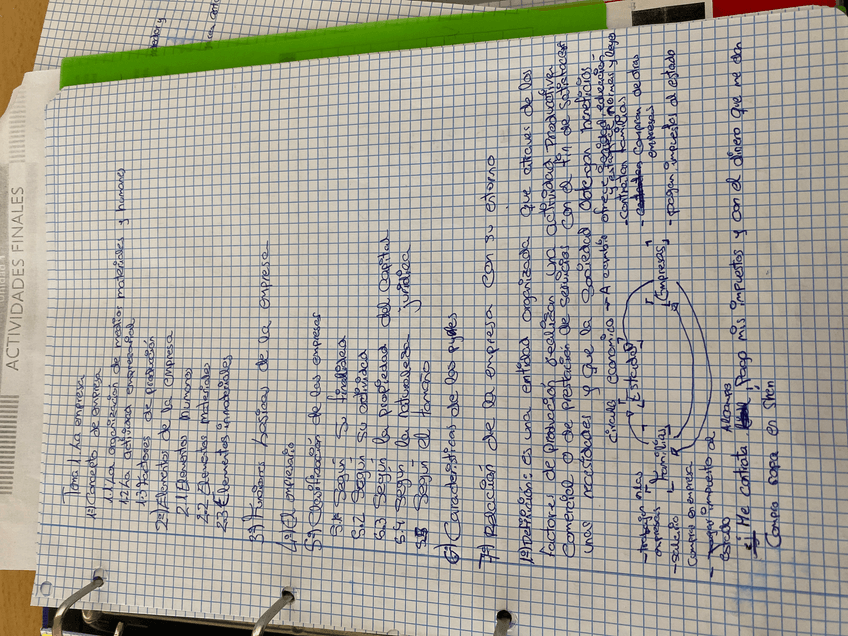 ACTIVIDADES FINALES
Tema 1: La empresa
1º) Concepto de empresa
1.1 La organización de medios materiales y humanos
1.2 La actividad empresarial
1.3 Factores de producción
2º) Elementos de la empresa
2.1 Elementos Humanos
2.2 Elementos materiales
2.3 Elementos inmateriales
3º) Funciones básicas de la empresa
4º) El empresario
5º) Clasificación de las empresas
5.1 Según su finalidad
5.2 Según su actividad
5.3 Según la propiedad del capital
5.4 Según la naturaleza jurídica
5.5 Según el tamaño
6º) Características de las pymes
7º) Relación de la empresa con su entorno
1º) Definición: es una entidad organizada que atraves de los
factores de producción realizan una actividad productiva
comercial o de prestación de servicios con el fin de satisfacer
unas necesidades y que la sociedad obtengan beneficios.
círculo económico → A cambio ofrece sanidad, educación
y establece normas y leyes
- contratan familias
- compran de otras
empresas
- pagan impuestos al estado
Estado
Empresas
familias
- trabajan en las
empresas
- salario
Compra en empresa
- pagar impuesto al
estado
Ej: Me contrata Pago mis impuestos y con el dinero que me dan
Compro ropa en Shein